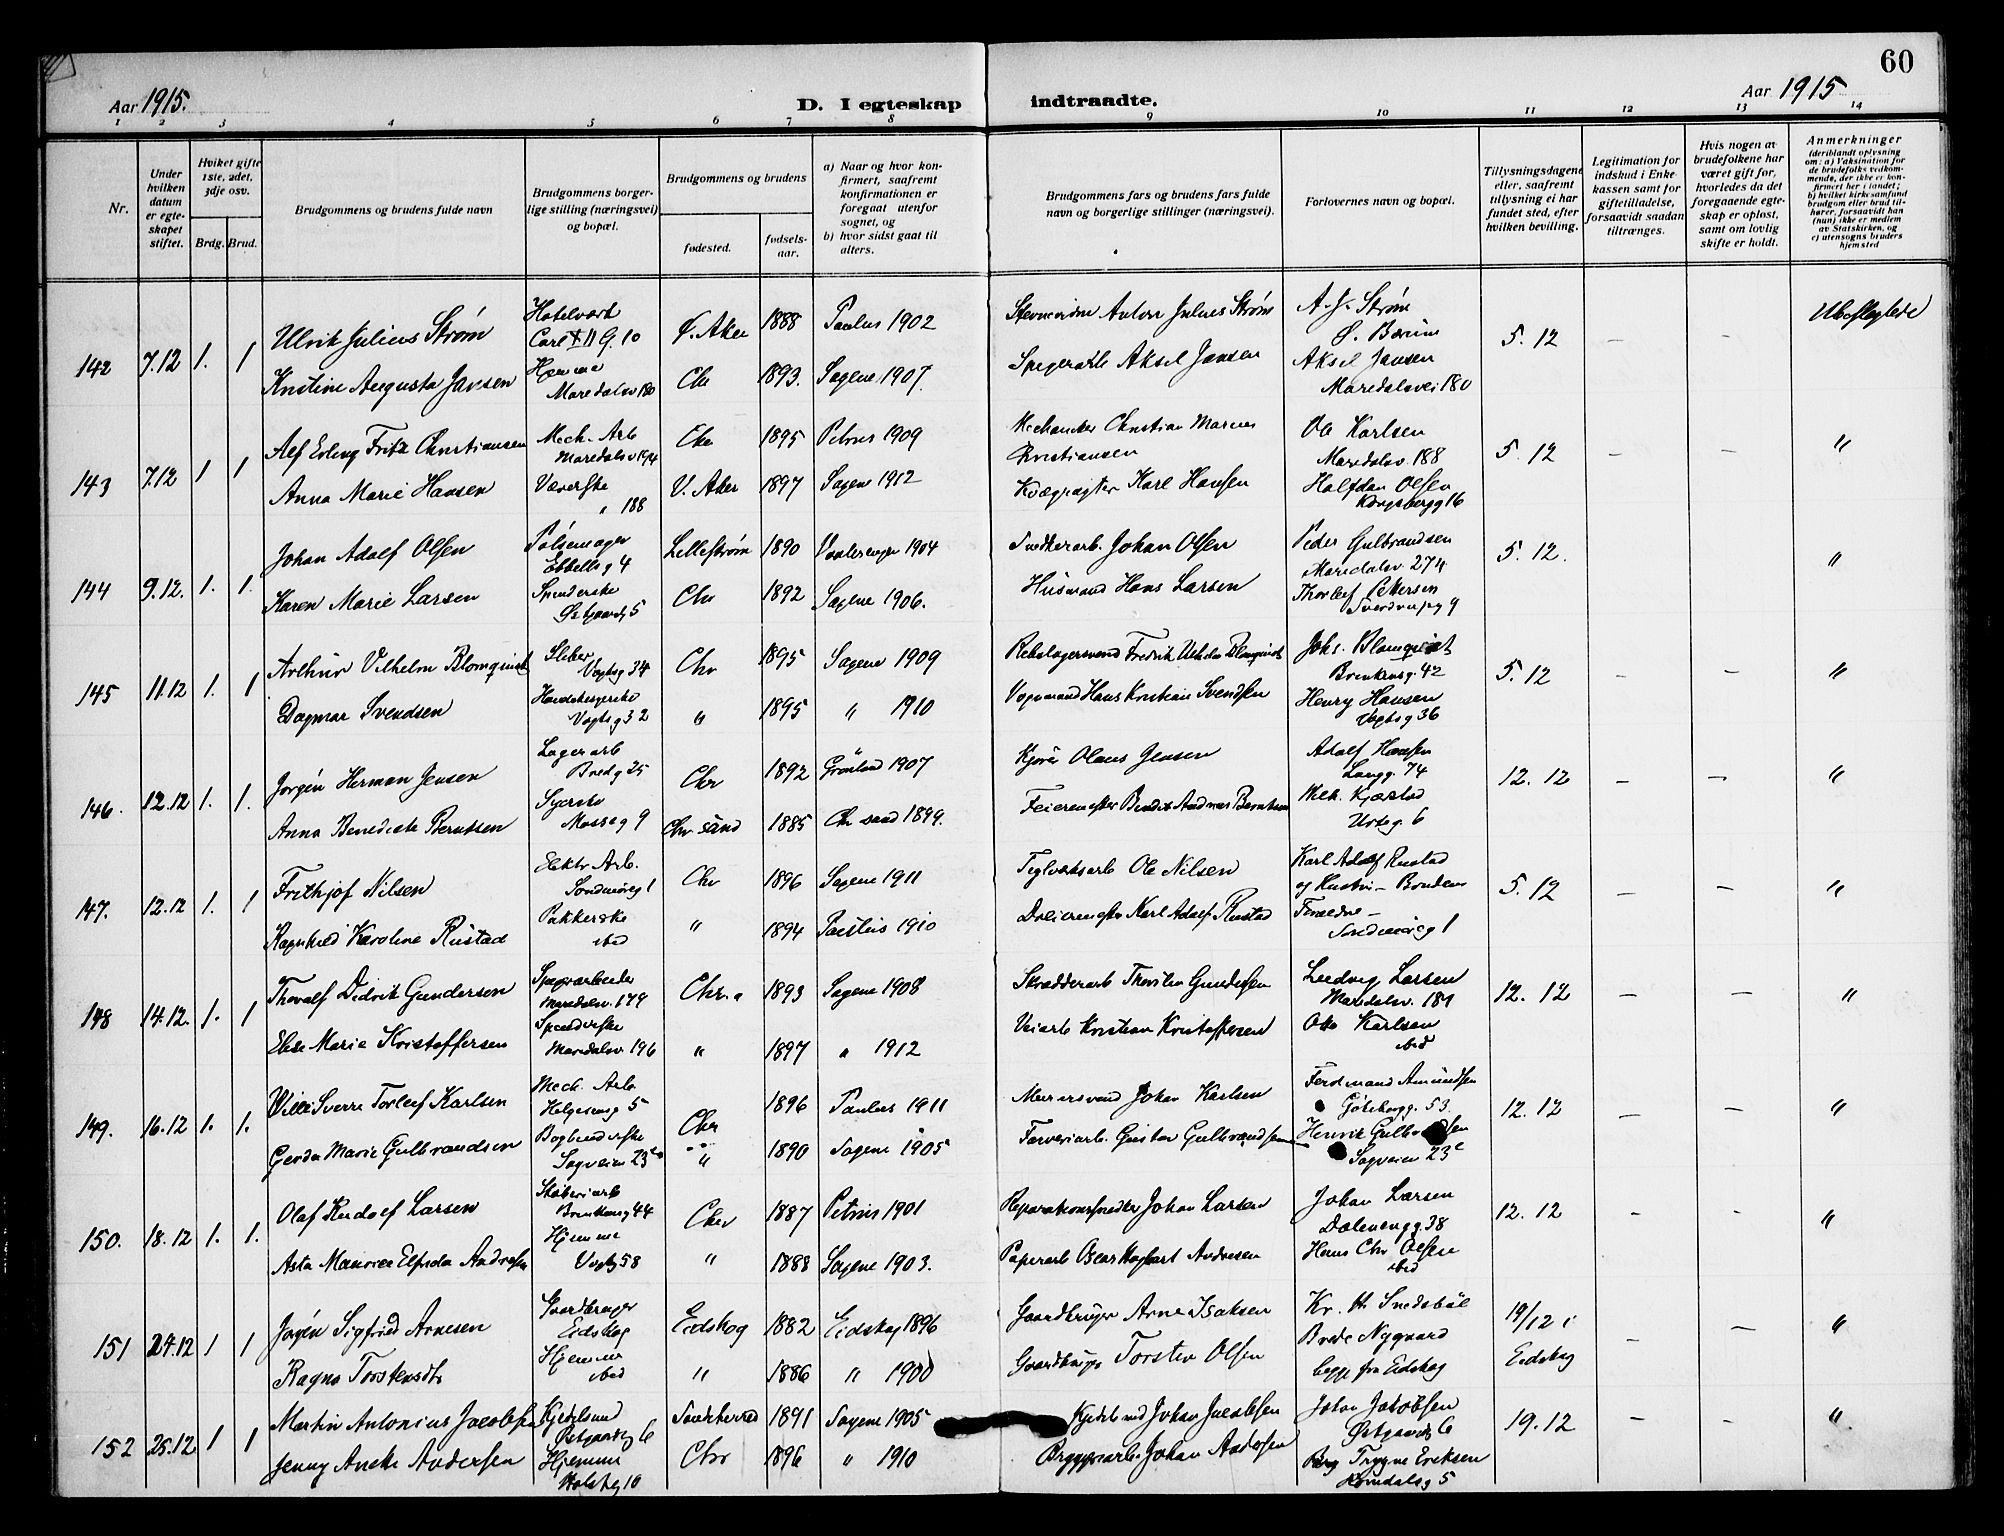 60
Aar 1915.
D. I egteskap indtraadte.
Aar 1915
1 2 3 4 5 6 7 8 9 10 11 12 13 14
Nr.
Under hvilken datum er egte-skapet stiftet.
Hviket gifte 1ste, 2det, 3dje osv.
Brdg. Brud.
Brudgommens og brudens fulde navn
Brudgommens borger-lige stilling (næringsvei) og bopæl.
Brudgommens og brudens
fødested.
fødsels-aar.
a) Naar og hvor kon-firmert, saafremt konfirmationen er foregaat utenfor sognet, og
b) hvor sidst gaat til alters.
Brudgommens fars og brudens fars fulde navn og borgerlige stillinger (næringsvei).
Forlovernes navn og bopæl.
Tillysningsdagene eller, saafremt tillysning ei har fundet sted, efter hvilken bevilling.
Legitimation for indskud i Enke-kassen samt for giftetilladelse, forsaavidt saadan tiltrænges.
Hvis nogen av brudefolkene har været gift for, hvorledes da det foregaaende egte-skap er opløst, samt om lovlig skifte er holdt.
Anmerkninger (deriblandt oplysning om: a) Vaksination for de brudefolks vedkom-mende, der ikke er kon-firmert her i landet; b) hvilket kirkesamfund brudgom eller brud til-hører, forsaavidt han (hun) ikke er medlem av Statskirken, og c) utensogns bruders hjemsted
142 7.12 1. 1 Ulrik Julius Strøm Hotelvært Carl XII G. 10 Ø. Aker 1888 Paulus 1902 Anton Julius Strøm A. J. Strøm Ø. Bærum 5.12 – – Ubeslegtede
Kristine Augusta Jansen Hjemme Maridalsv 180 Chr 1893. Sagene 1907. Spigerarb Aksel Jansen Aksel Jansen Maridalsvei 180
143 7.12 1 1 Alf Erling Fritz Christiansen Mech. Arb Maridalsv 194 Chr 1895 Petrus 1909 Mechaniker Christian Marius Christiansen Ole Karlsen Maridalsv. 188 5.12 – – "
Anna Marie Hansen Væverske " 188 V. Aker 1897 Sagene 1912 Kvægrøgter Karl Hansen Halfdan Olsen Kongsbergg 16
144 9.12. 1. 1. Johan Adolf Olsen Pølsemager Ebbellsg 4 Lillestrøm 1890 Vaalerengen 1904 Snedkerarb. Johan Olsen Peder Gulbrandsen Maridalsv. 274 5.12. "
Karen Marie Larsen Spinderske Østgaardsg 5 Chr 1892 Sagene 1906. Husmand Hans Larsen Thorleif Pettersen Sverdrupsg 9
145 11.12 1. 1 Arthur Vilhelm Blomquist Sliber Vogtsg 34 Chr 1895 Sagene 1909 Rebslagersvend Fredrik Vilhelm Blomquist Johs. Blomquist Brinkensg. 42 5.12 – – "
Dagmar Svendsen Vogtsg 32 " 1895 " 1910 Vognmand Hans Kristian Svendsen Henry Hansen Vogtsg 36
146. 12.12 1. 1. Jørgen Herman Jensen Lagerarb Bredg 25 Chr 1892 Grønland 1907 Kjører Olaus Jensen Adolf Hansen Langg. 74 12.12 – – "
Anna Benedicte Berntsen Syerske Mosseg 9 Chr sand 1885 Chr sand 1899. Feiermester Bendix Andreas Berntsen Wilh. Kjærstad Urteg. 6
147. 12.12 1. 1 Frithjof Nilsen Elektr Arb. Søndmøreg 1 Chr 1896 Sagene 1911 Teglverksarb Ole Nilsen Karl Adolf Rustad og Hustru – Brudens Forældre – Søndmøreg 1 5.12 – – "
Ragnhild Karoline Rustad Pakkerske ibid " 1894 Paulus 1910 Karl Adolf Rustad
148 14.12. 1. 1 Thoralf Didrik Gundersen Spigerarbeider Maridalsv. 179 Chr.a 1893 Sagene 1908 Skrædderarb Thorsten Gundersen Ludvig Larsen Maridalsv. 189 12.12 – – "
Elise Marie Kristoffersen Spinderske Maridalsv 196 " 1897 " 1912 Veiarb Kristian Kristoffersen Otto Karlsen ibid
149. 16.12 1. 1. Willi Sverre Torleif Karlsen Mech. Arb Helgesensg 5 Chr 1896 Paulus 1911 Murersvend Johan Karlsen Ferdinand Amundsen Göteborgg. 53. 12.12 – – "
Gerda Marie Gulbrandsen Bogbinderske Sagveien 23c " 1890 Sagene 1905 Farveriarb. Gustav Gulbrandsen Henrik Gulbrandsen Sagveien 23c
150. 18.12 1. 1. Olaf Rudolf Larsen Støberiarb Brinkensg 44 Chr 1887 Petrus 1901 Reparationssmed Johan Larsen Johan Larsen Dælenengg. 38 12.12 – – "
Asta Elfrida Andresen Hjemme Vogtsg 58 " 1888 Sagene 1903. Papirarb Oscar Hagbart Andresen Hans Chr Olsen ibid
151 24.12 1 1 Jørgen Sigfried Arnesen Gaardbruger Eidskog Eidskog 1882 Eidskog 1896 Gaardbruger Arne Isaksen Kr. H. Snedsbøl 19/12 i Eidskog – – "
Ragna Torstensdtr Hjemme ibid " 1886 " 1900 Gaardbruger Torsten Olsen Brede Nygaard begge fra Eidskog
152 25.12 1 1 Martin Antonius Jacobsen Kjedelsmed Østgaardsg 6 1891 Sagene 1905 Kjedelsmed Johan Jacobsen Johan Jacobsen Østgaardsg 6 19.12 – – "
Jenny Andersen Hjemme Holstsg 10 Chr 1896 " 1910 Bryggeriarb. Johan Andersen Trygve Eriksen Romsdalsg 5